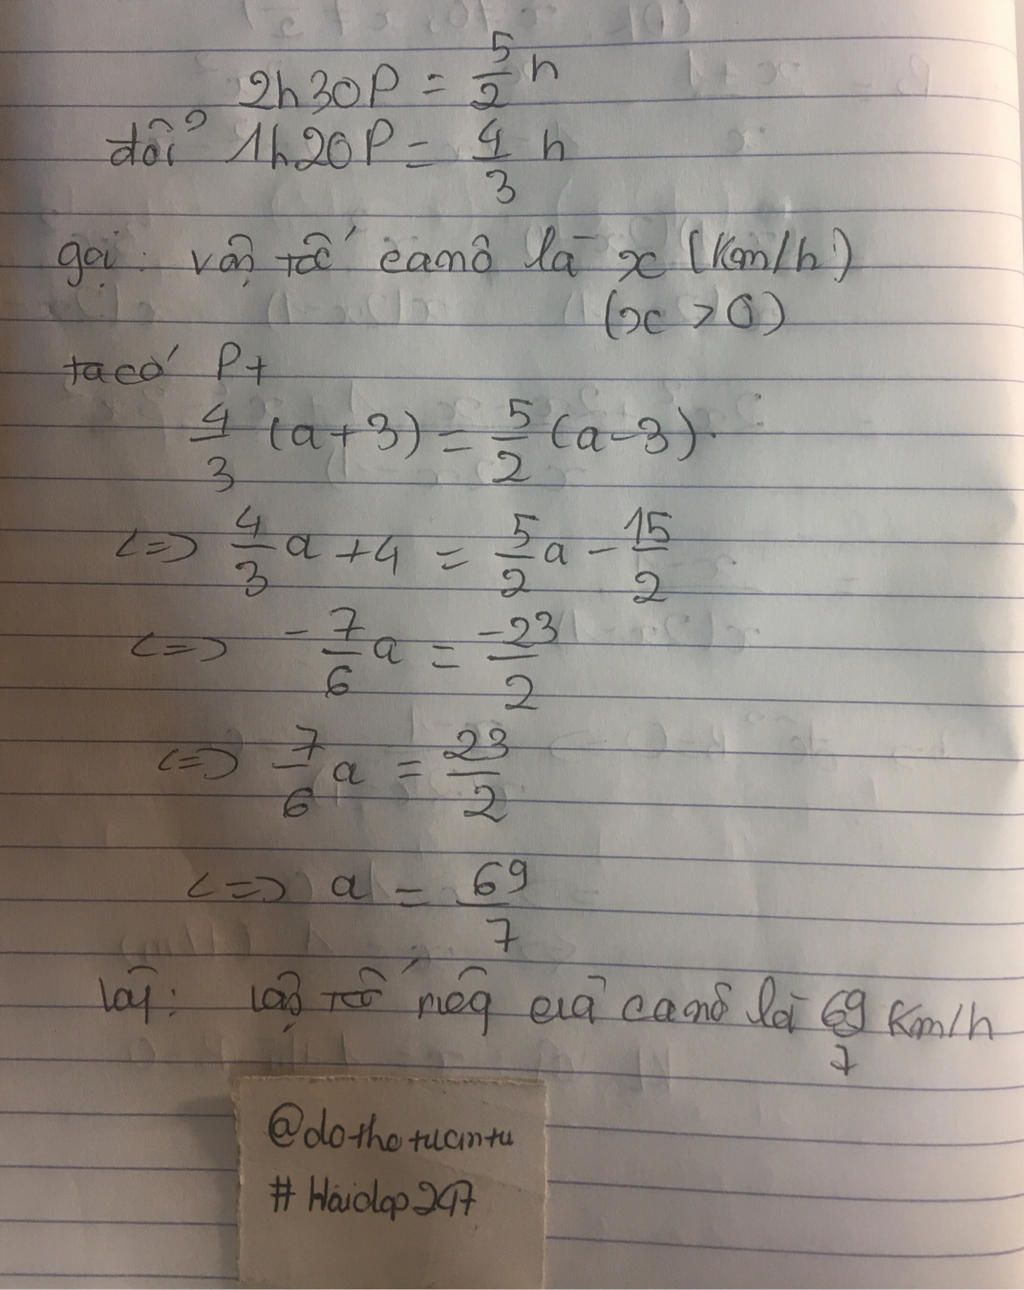 2h30P = 5/2 h
đổi 1h20P = 4/3 h
gọi: vận tốc canô là x (Km/h)
(x > 0)
ta có Pt
4/3 (a+3) = 5/2 (a-3).
<=> 4/3 a + 4 = 5/2 a - 15/2
<=> -7/6 a = -23/2
<=> 7/6 a = 23/2
<=> a = 69/7
Vậy: vận tốc riêng của canô là 69/7 Km/h
@dothetuantu
#Hoidap247